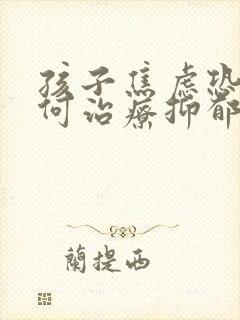 孩子焦虑恐
何治疗抑郁
蘭提西